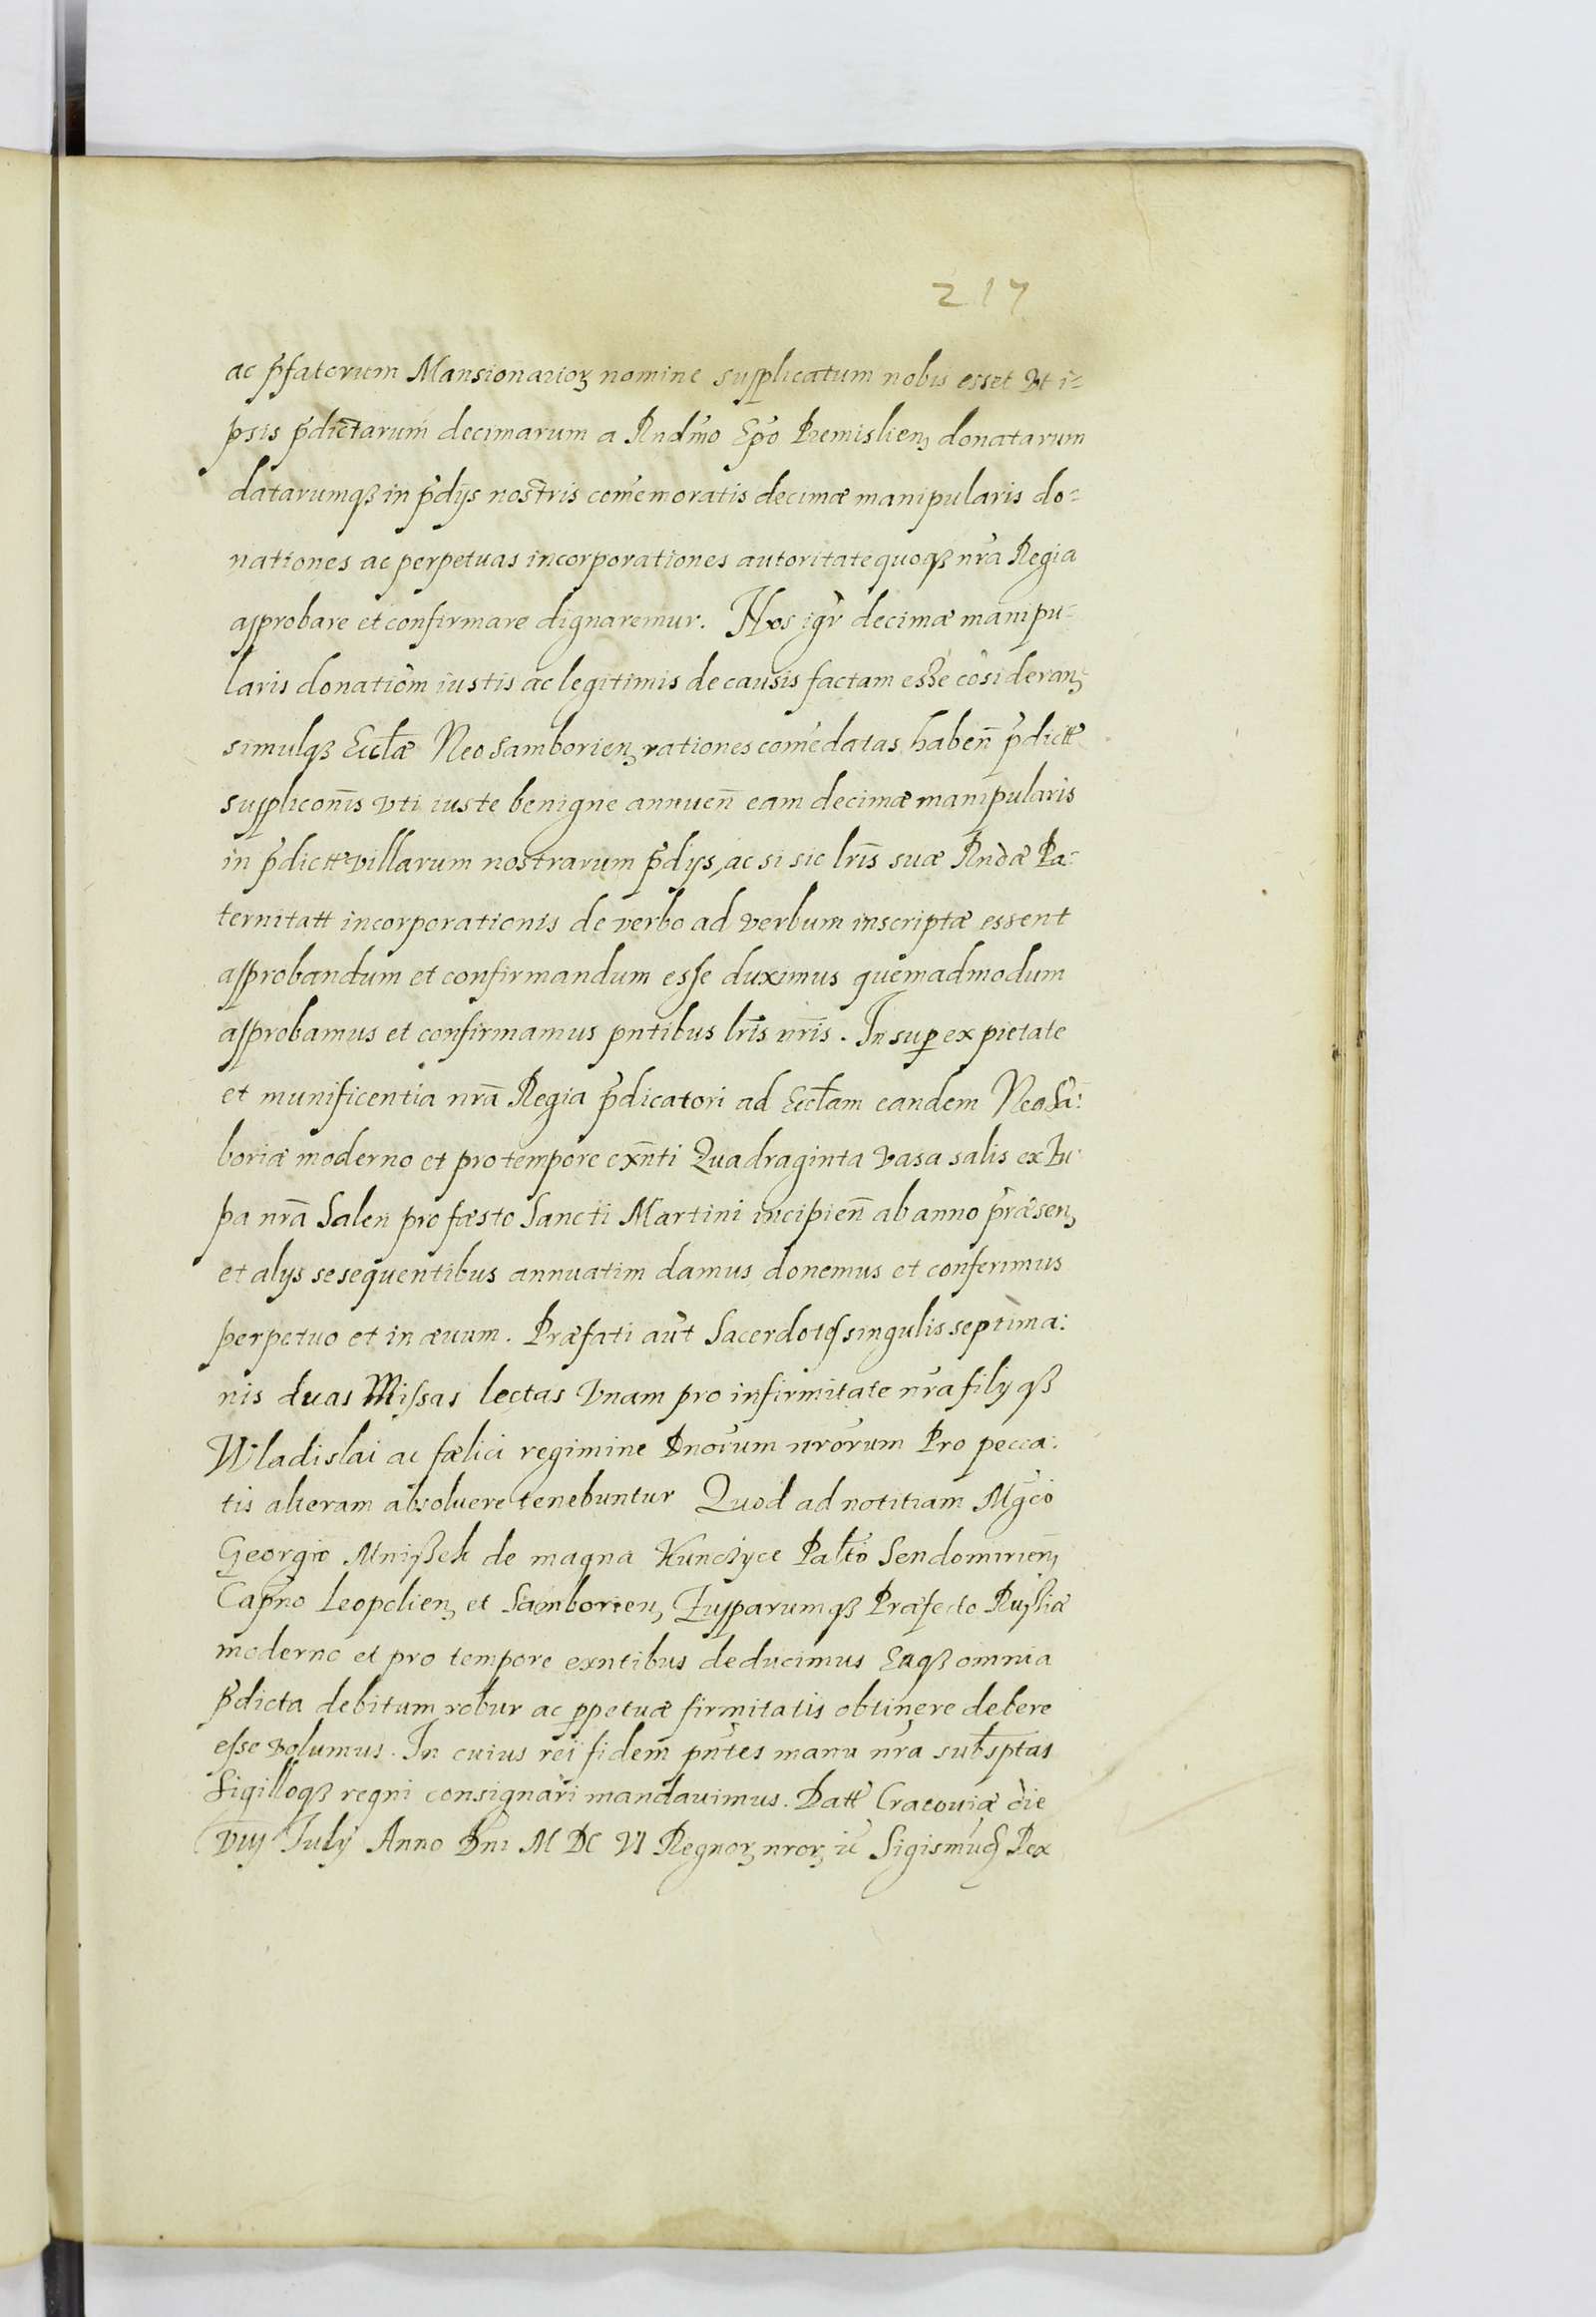 217
ac p̃fatorum Mansionarioꝝ nomine supplicatum nobis esset Vt i=
psis p̃dictarum decimarum a Rndm̃o Ep̃o Premislienꝫ donatarum
datarumqꝫ in p̃dijs nostris com̃emoratis decimæ manipularis do=
nationes ac perpetuas incorporationes autoritate quoqꝫ nr̃a Regia
approbare et confirmare dignaremur. Nos igr̃ decimæ manipu=
laris donatiõm iustis ac legitimis de causis factam esse cõsideranꝫ
simulqꝫ Eccl̃æ Neosamborienꝫ rationes com̃edatas haben̄ p̃dictæ
suppliconis̄ vti iuste benigne annuen̄ eam decimæ manipularis
in p̃dictt villarum nostrarum p̃dijs, ac si sic lris̄ suæ Rndæ Pa:
ternitatt incorporationis de verbo ad verbum inscriptæ essent
approbandum et confirmandum esse duximus quemadmodum
approbamus et confirmamus pntibus lris̄ nris̄. Insuꝑ ex pietate
et munificentia nrā Regia p̃dicatori ad Eccl̃am eandem Neosã:
boriæ moderno et pro tempore exn̄ti Quadraginta Vasa salis ex Zu:
pa nrā Salen pro fæsto Sancti Martini incipien̄ ab anno præsenꝫ
et alijs sesequentibus annuatim damus donemus et conferimus
perpetuo et in æuum. Præfati aut̃ Sacerdotes singulis septima:
nis duas Missas lectas Vnam pro infirmitate nr̃a filij qꝫ
Wladislai ac fælici regimine Dnorum nrorum Pro pecca:
tis alteram absoluere tenebuntur Quod ad notitiam Mgc̃o
Georgio Mnißek de magna Kunczyce Palt̃o Sendomirien̄ꝫ
Capn̄o Leopolienꝫ et Samborienꝫ Zupparumqꝫ Præfecto Russiæ
moderno et pro tempore exntibus deducimus Eaqꝫ omnia
p̃dicta debitum robur ac ꝑpetuæ firmitatis obtinere debere
esse volumus. In cuius rei fidem pn̄tes manu nr̃a subsptas
Sigilloqꝫ regni consignari mandauimus. Datt Cracouiæ die
Viij Julij Anno Dni M DC VI Regnoꝝ nroꝝ ꝛc Sigismũdꝰ Rex